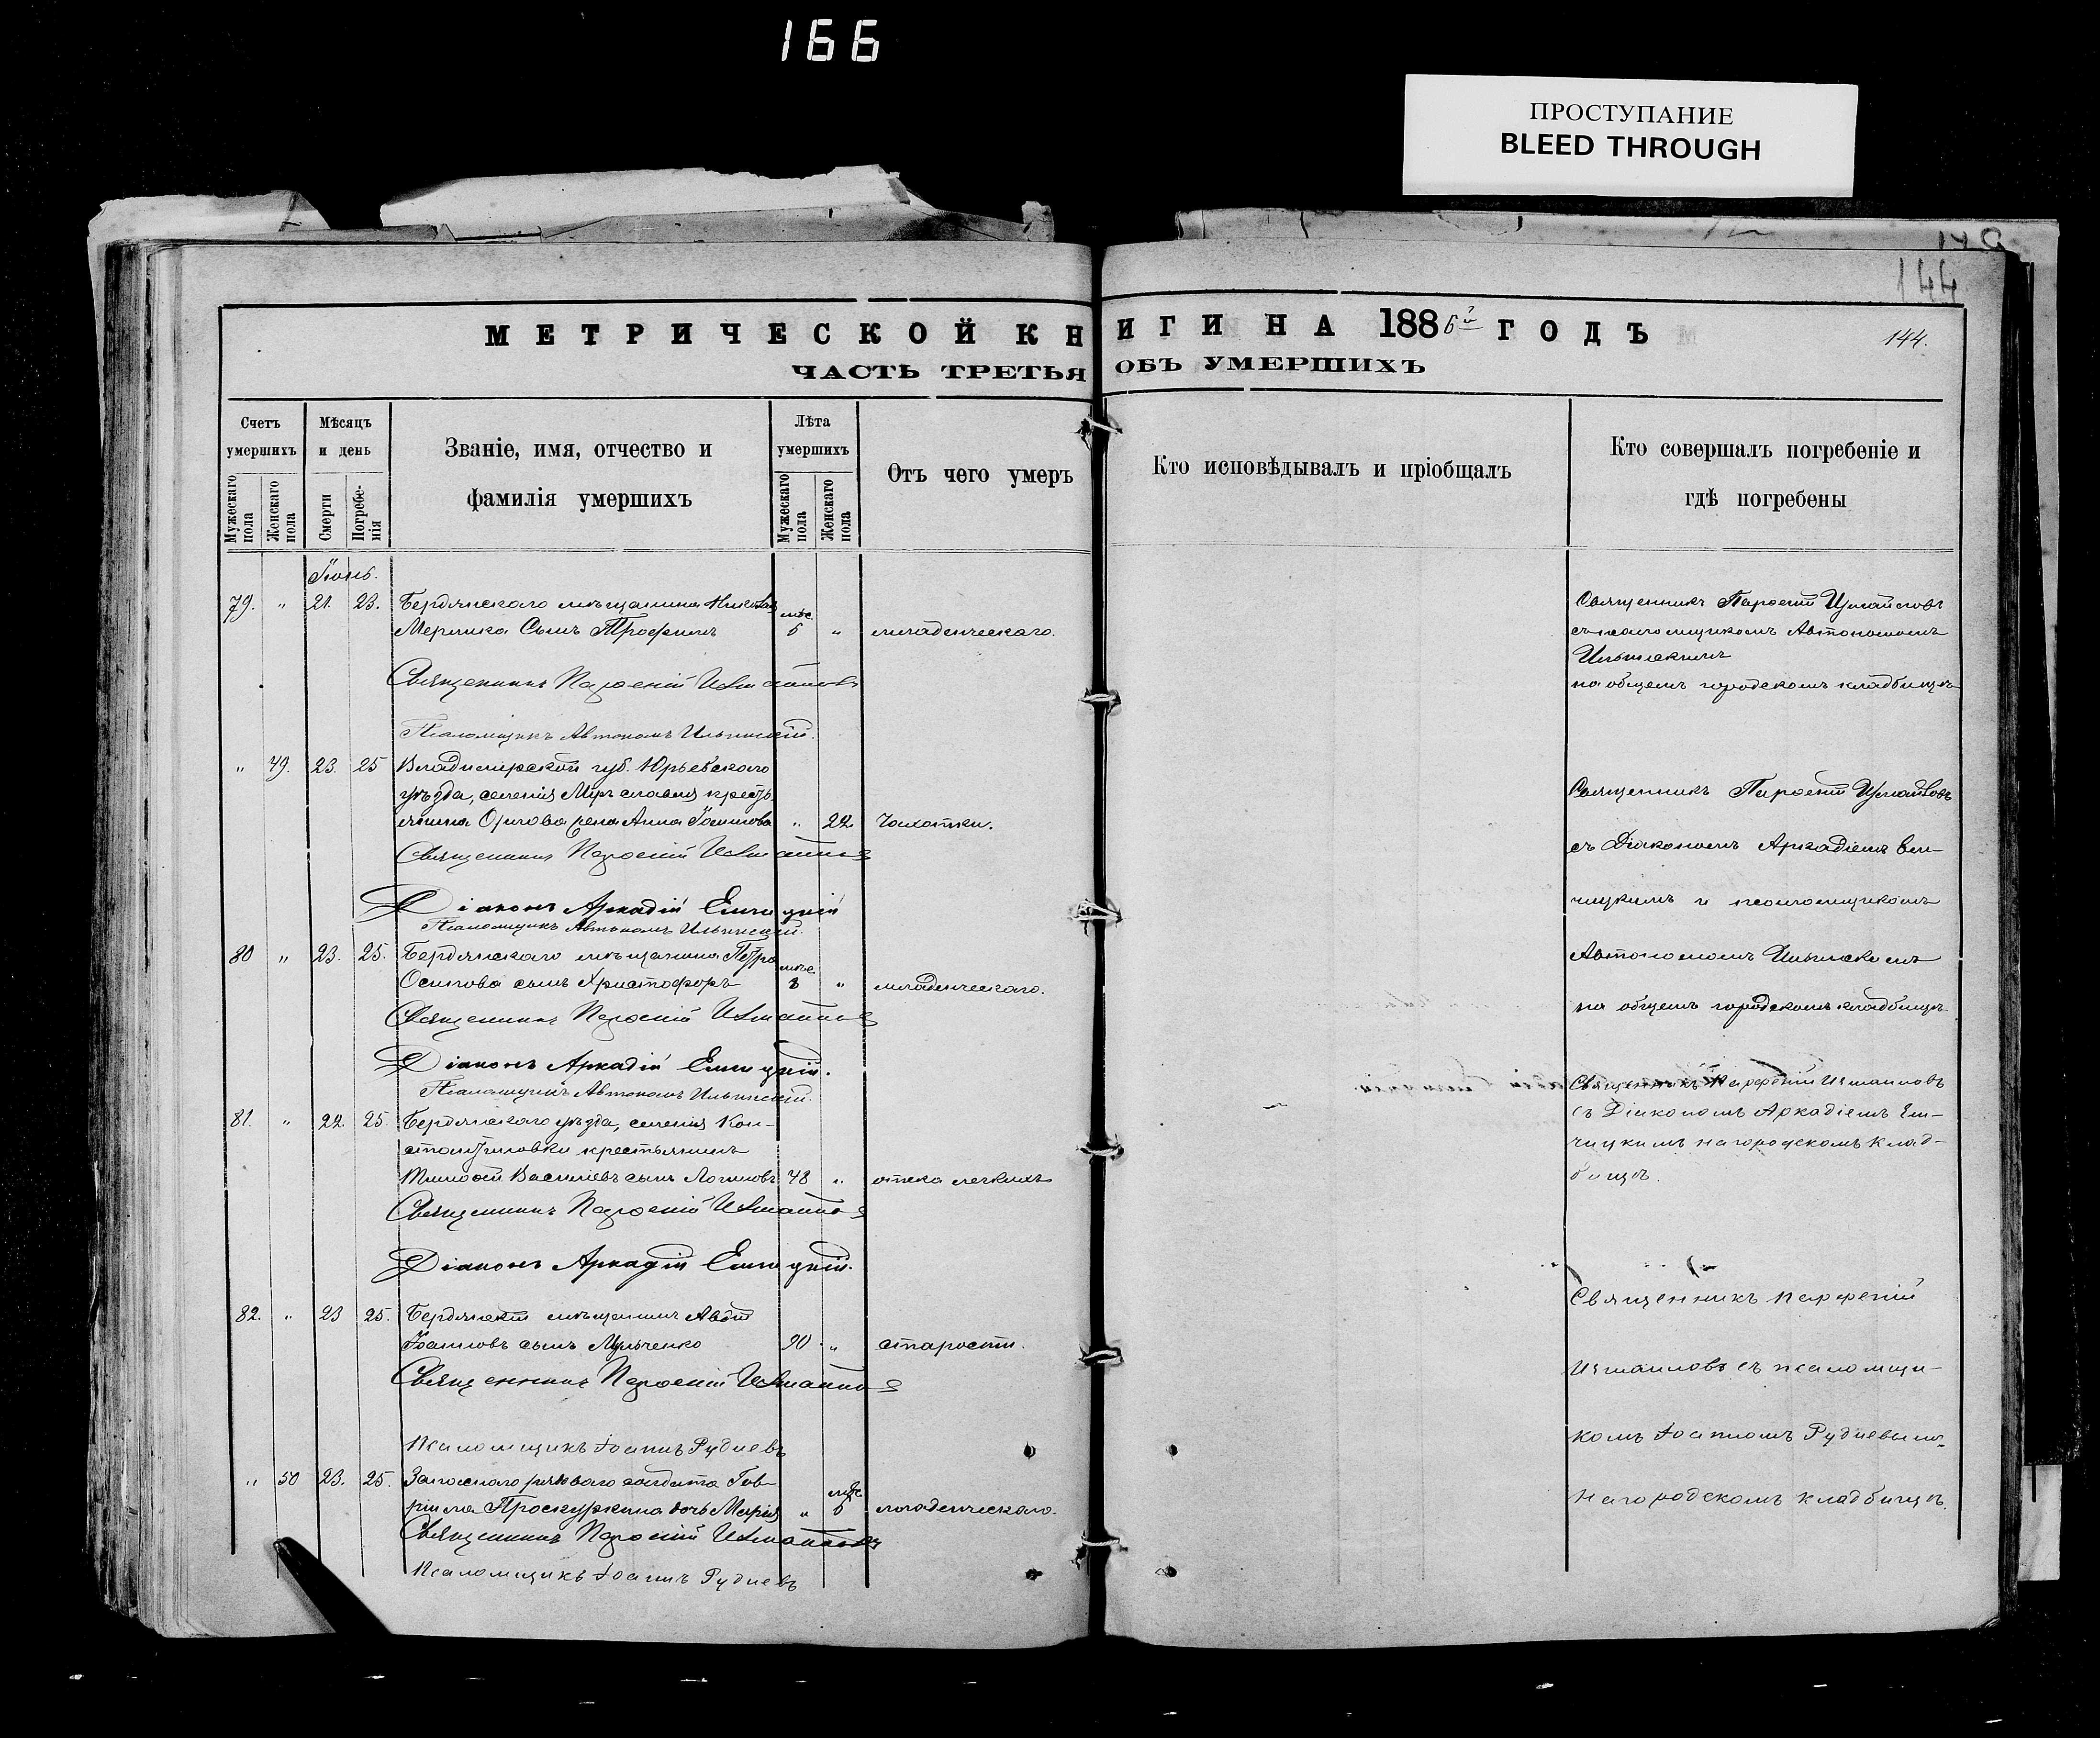 166
ПРОСТУПАНИЕ
BLEED THROUGH
144
МЕТРИЧЕСКОЙ КНИГИ НА 1886й ГОДЪ
144.
ЧАСТЬ ТРЕТЬЯ ОБЪ УМЕРШИХЪ
Счетъ умершихъ
Мужескаго пола
Женскаго пола
Мѣсяцъ и день
Смерти
Погребенія
Званіе, имя, отчество и
фамилія умершихъ
Лѣта умершихъ
Мужескаго пола
Женскаго пола
Отъ чего умеръ
Кто исповѣдывалъ и пріобщалъ
Кто совершалъ погребеніе и
гдѣ погребены
79. " 21. 23. Бердянскаго мѣщанина Николая
сынъ Трофимъ мѣс. 6 " младенческаго.
Священникъ Парѳеній Измаиловъ
съ псаломщикомъ Автономомъ
Ильинскимъ
на общемъ городскомъ кладбищѣ
Священникъ Парѳеній Измаиловъ
Псаломщикъ Автономъ Ильинскій.
" 49. 23. 25 Владимірской губ. Юрьевскаго
уѣзда, селенія крестья-
янина жена Анна " 22 Чахотки.
Священникъ Парѳеній Измаиловъ
Діаконъ Аркадій Емчицкій
Псаломщикъ Автономъ Ильинскій.
Священникъ Парѳеній Измаиловъ
съ Діакономъ Аркадіемъ Ем-
чицкимъ и псаломщикомъ
Автономомъ Ильинскимъ
на общемъ городскомъ кладбищѣ
80 " 23. 25. Бердянскаго мѣщанина Петра
Осипова сынъ Христофоръ мѣс. 8 " младенческаго.
Священникъ Парѳеній Измаиловъ
Діаконъ Аркадій Емчицкій.
Псаломщикъ Автономъ Ильинскій.
81. " 22. 25. Бердянскаго уѣзда, селенія Кон-
стантиновки крестьянинъ
Тимоѳей Васильевъ сынъ Логиновъ 48 " отека легкихъ
Священникъ Парѳеній Измаиловъ
Діаконъ Аркадій Емчицкій.
Священникъ Парѳеній Измаиловъ
съ Діакономъ Аркадіемъ Ем-
чицкимъ на городскомъ клад-
бищѣ.
82. " 23 25. Бердянскій мѣщанинъ
Іоанновъ сынъ Мульченко 90 " старости.
Священникъ Парѳеній Измаиловъ
Псаломщикъ Іоаннъ Рудневъ
Священникъ Парѳеній
Измаиловъ съ псаломщи-
комъ Іоанномъ Рудневымъ
на городскомъ кладбищѣ.
" 50 23. 25. Запаснаго рядоваго солдата Гав-
ріила Проскуркина дочь Марія " мѣс. 6 младенческаго.
Священникъ Парѳеній Измаиловъ
Псаломщикъ Іоаннъ Рудневъ